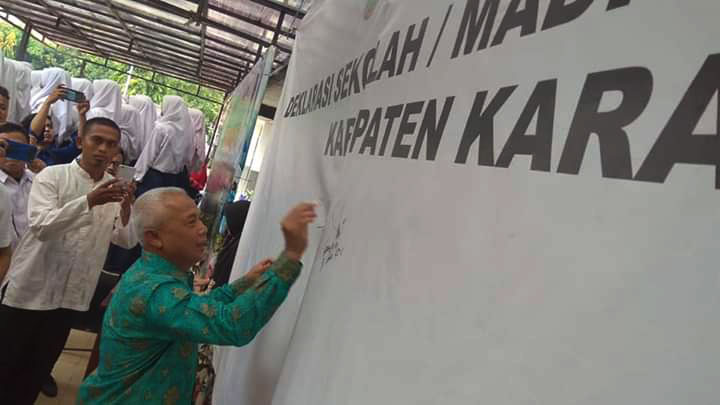 DEKLARASI SEKOLAH / MAD
KABPATEN KARA